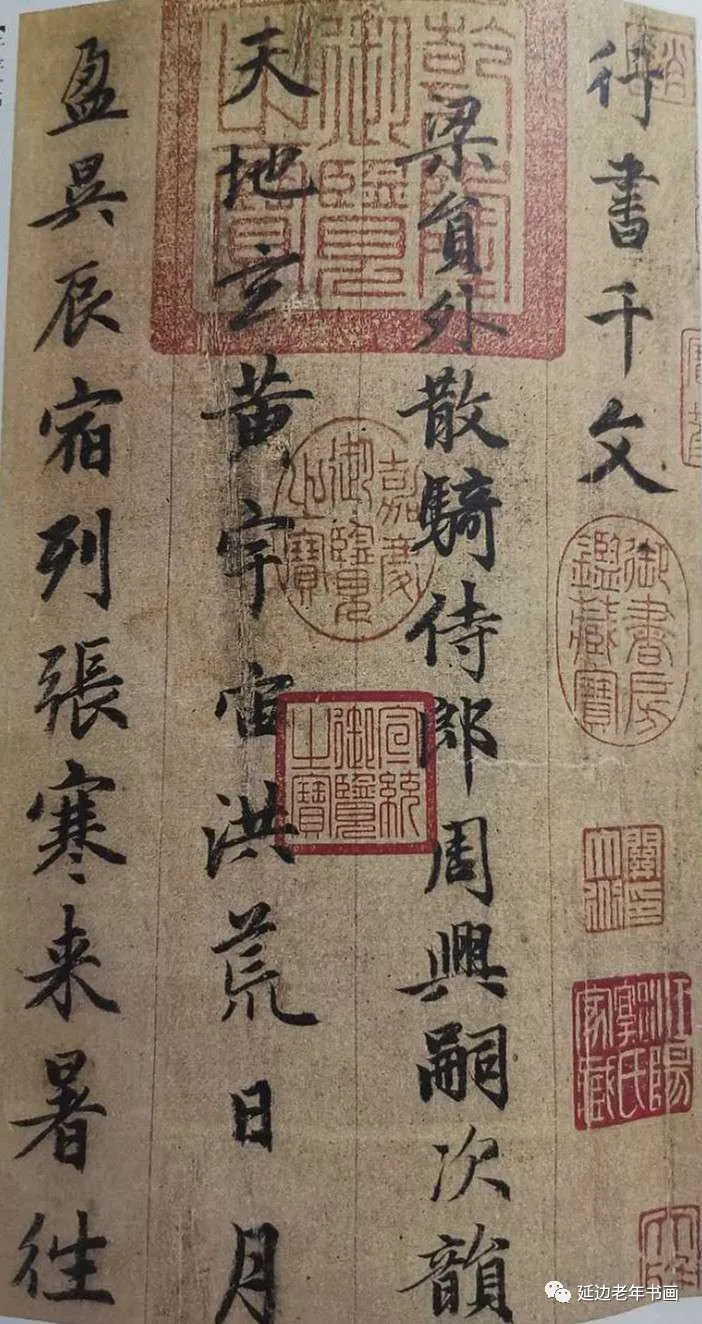 行書千文
梁員外散騎侍郎周興嗣次韻
天地玄黄宇宙洪荒日月
盈昃辰宿列張寒来暑往
乾隆御覽之寶
嘉慶御覽之寶
宣統御覽之寶
御書房鑑藏寶
延边老年书画